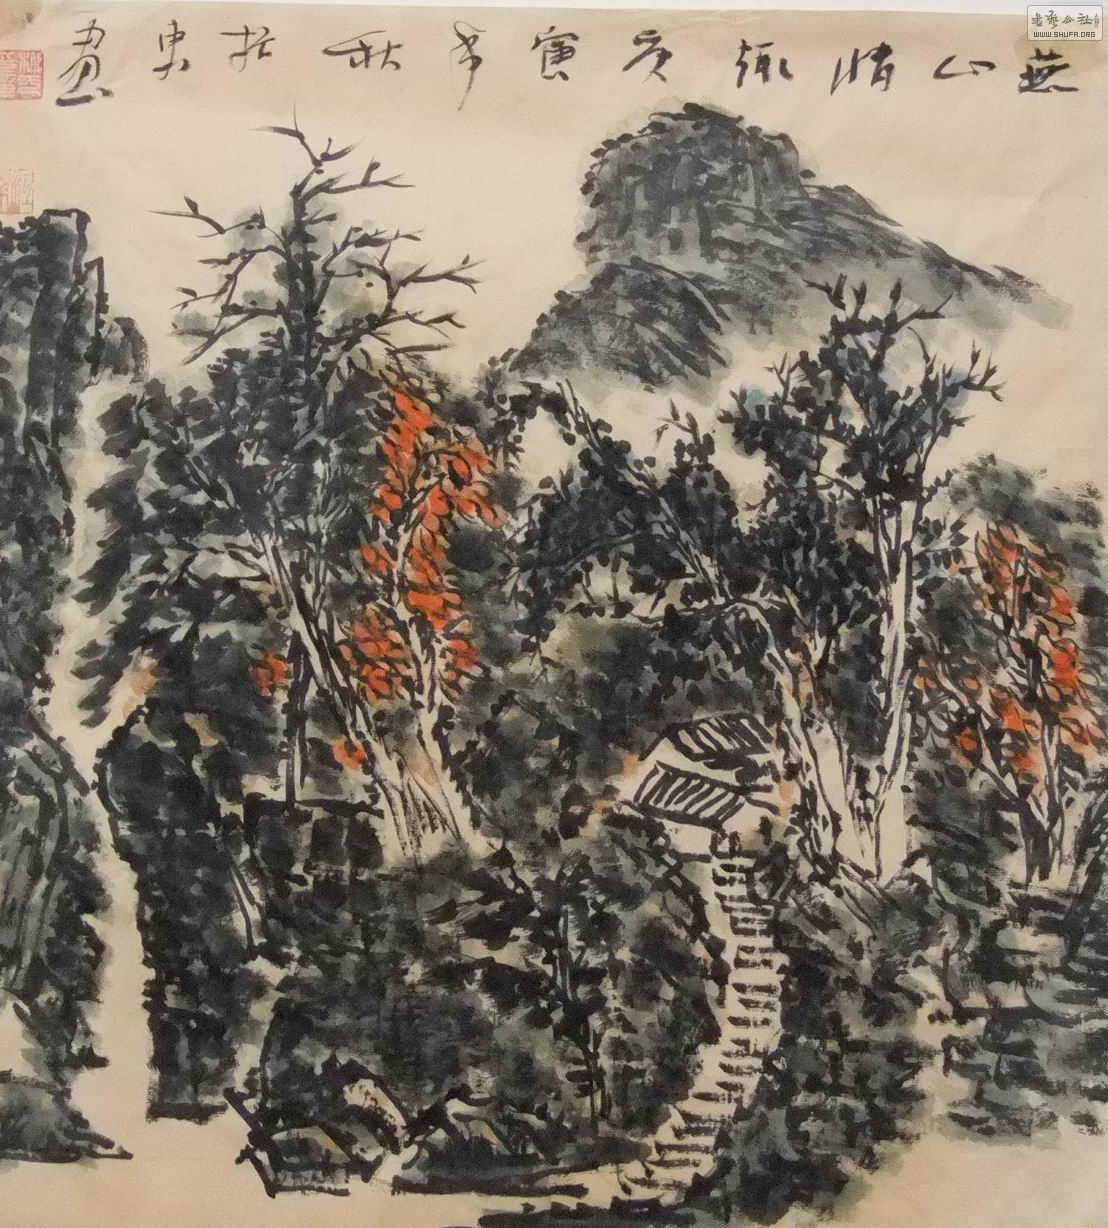 燕山情庚寅年秋东画
書藝公社
WWW.SHUFA.ORG